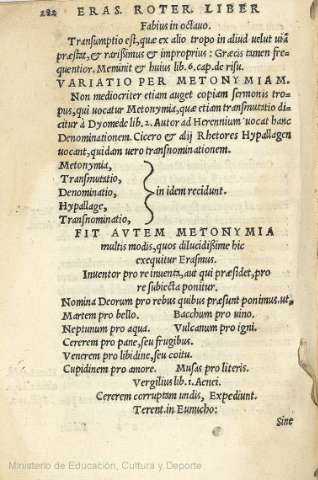 282 ERAS. ROTER. LIBER
Fabius in octauo.
Transumptio est, quæ ex alio tropo in aliud uelut uiã
præstat, & rarissimus et improprius: Græcis tamen fre-
quentior. Meminit & huius lib. 6. cap. de risu.
VARIATIO PER METONYMIAM.
Non mediocriter etiam auget copiam sermonis tro-
pus, qui uocatur Metonymia, quæ etiam transmutatio di
citur à Dyomede lib. 2. Autor ad Herennium uocat hanc
Denominationem. Cicero & alij Rhetores Hypallagen
uocant, quidam uero transnominationem.
Metonymia,
Transmutatio,
Denominatio, in idem recidunt.
Hypallage,
Transnominatio,
FIT AVTEM METONYMIA
multis modis, quos dilucidissime hic
exequitur Erasmus.
Inuentor pro re inuenta, aut qui præsidet, pro
re subiecta ponitur.
Nomina Deorum pro rebus quibus præsunt ponimus. ut,
Martem pro bello. Bacchum pro uino.
Neptunum pro aqua. Vulcanum pro igni.
Cererem pro pane, seu frugibus.
Venerem pro libidine, seu coitu.
Cupidinem pro amore. Musas pro literis.
Vergilius lib. 1. Aenei.
Cererem corruptam undis, Expediunt.
Terent. in Eunucho:
Sine
Ministerio de Educación, Cultura y Deporte